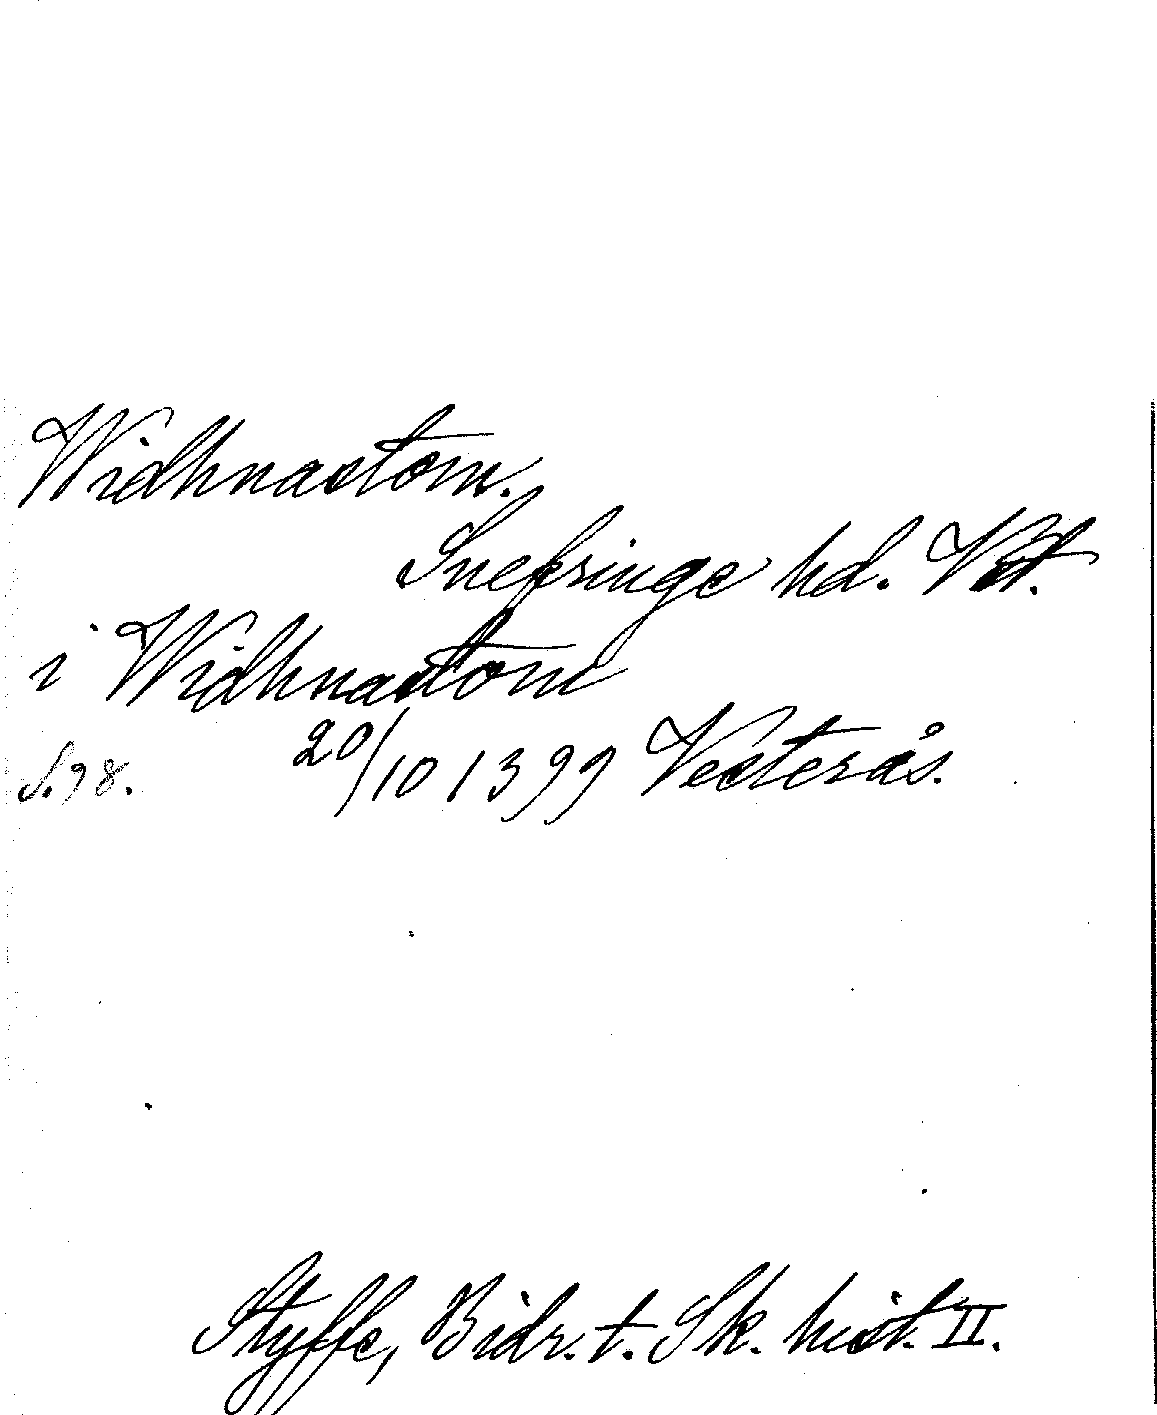 Widhnastom.
Snefringe hd. Vst.
i Widhnastom
s. 98. 20/10 1399 Vesterås.
Styffe, Bidr. t. Sk. hist. II.